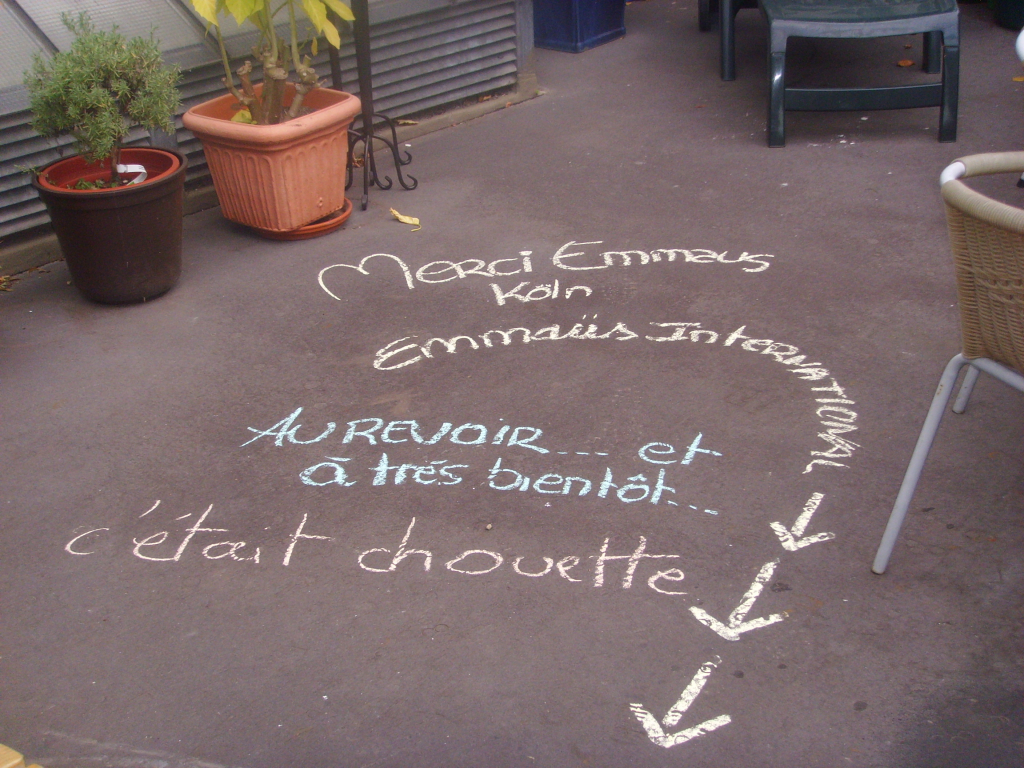 Merci Emmaus
Köln
Emmaüs International
AU REVOIR... et
à très bientôt...
c'était chouette